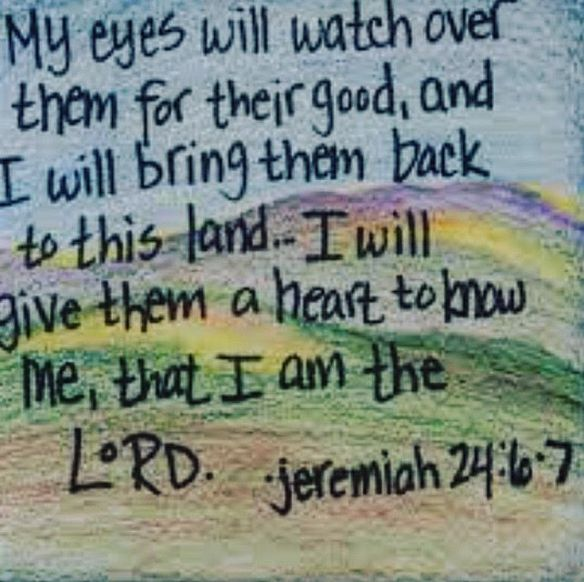 My eyes will watch over
them for their good, and
I will bring them back
to this land... I will
give them a heart to know
me, that I am the
LORD. -jeremiah 24:6-7